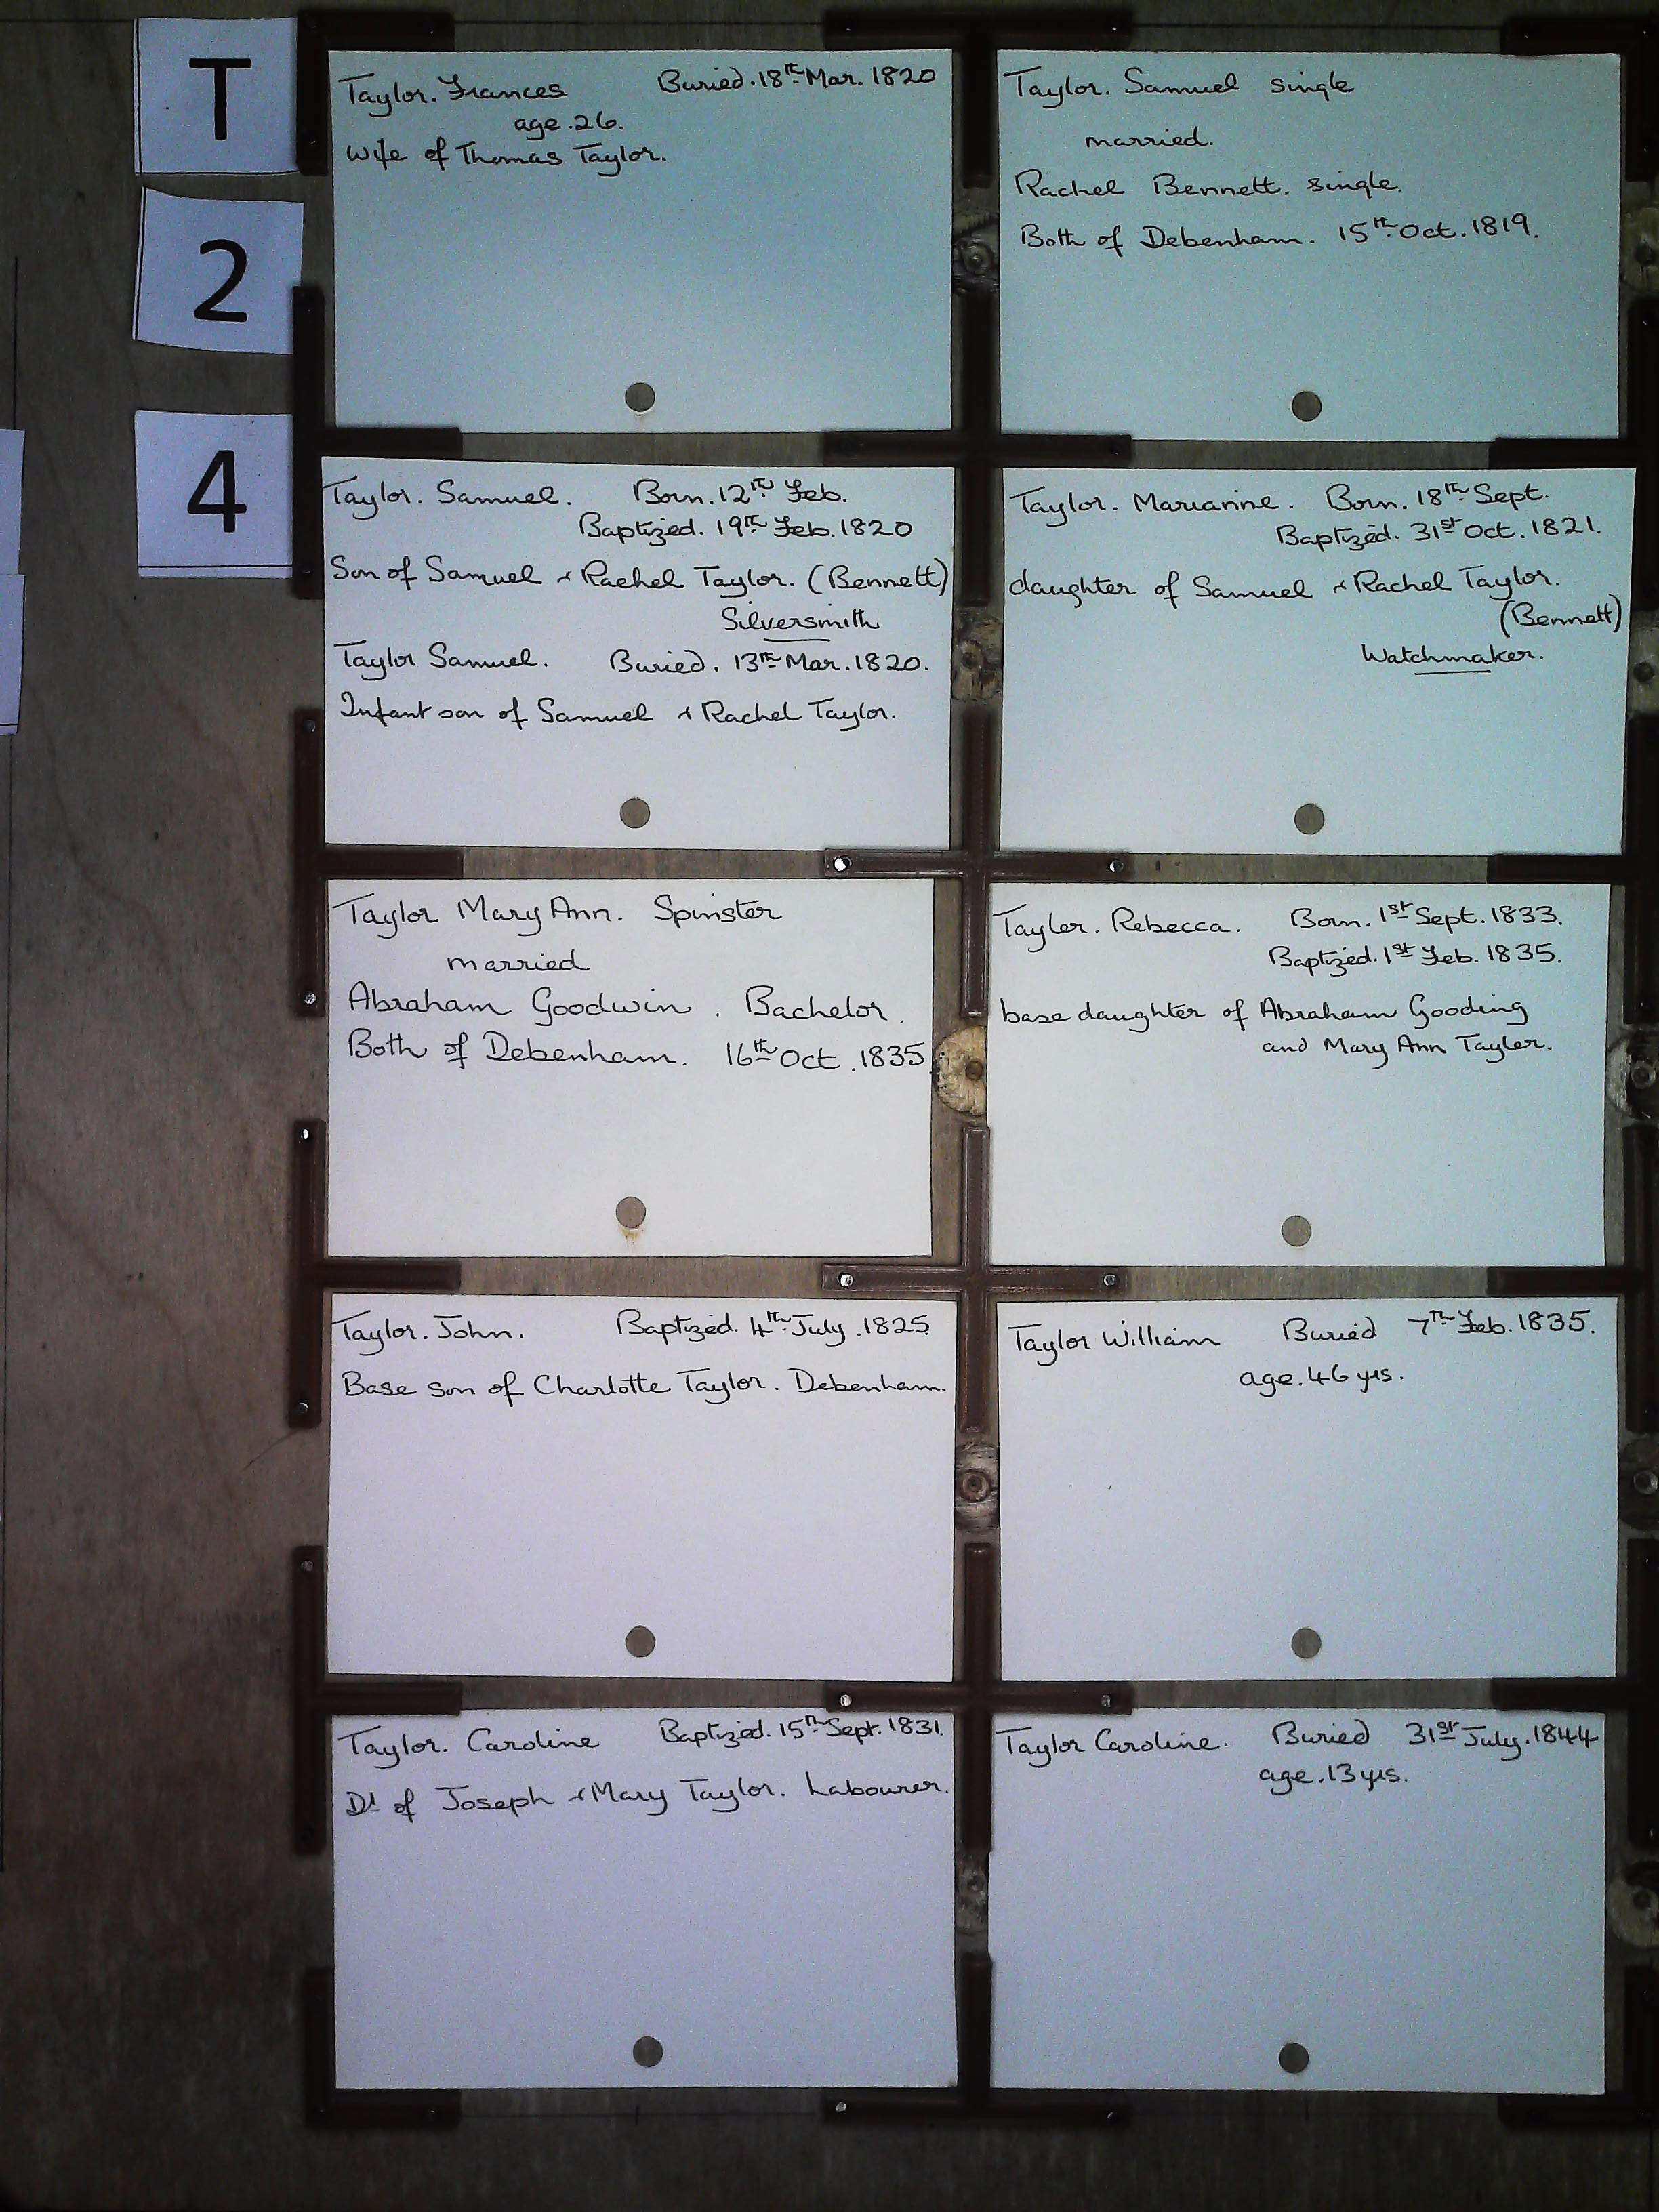 T
2
4
Taylor. Frances Buried. 18th Mar. 1820
age. 26.
Wife of Thomas Taylor.
Taylor. Samuel single
married.
Rachel Bennett. single.
Both of Debenham. 15th Oct. 1819.
Taylor. Samuel. Born. 12th Feb.
Baptized. 19th Feb. 1820
Son of Samuel & Rachel Taylor. (Bennett)
Silversmith
Taylor Samuel. Buried. 13th Mar. 1820.
Infant son of Samuel & Rachel Taylor.
Taylor. Marianne. Born. 18th Sept.
Baptized. 31st Oct. 1821.
daughter of Samuel & Rachel Taylor.
(Bennett)
Watchmaker.
Taylor Mary Ann. Spinster
married
Abraham Goodwin. Bachelor.
Both of Debenham. 16th Oct. 1835
Tayler. Rebecca. Born. 1st Sept. 1833.
Baptized. 1st Feb. 1835.
base daughter of Abraham Gooding
and Mary Ann Tayler.
Taylor. John. Baptized. 4th July. 1825
Base son of Charlotte Taylor. Debenham.
Taylor William Buried 7th Feb. 1835.
age. 46 yrs.
Taylor. Caroline Baptized. 15th Sept. 1831.
Dt of Joseph & Mary Taylor. Labourer.
Taylor Caroline. Buried 31st July. 1844
age. 13 yrs.